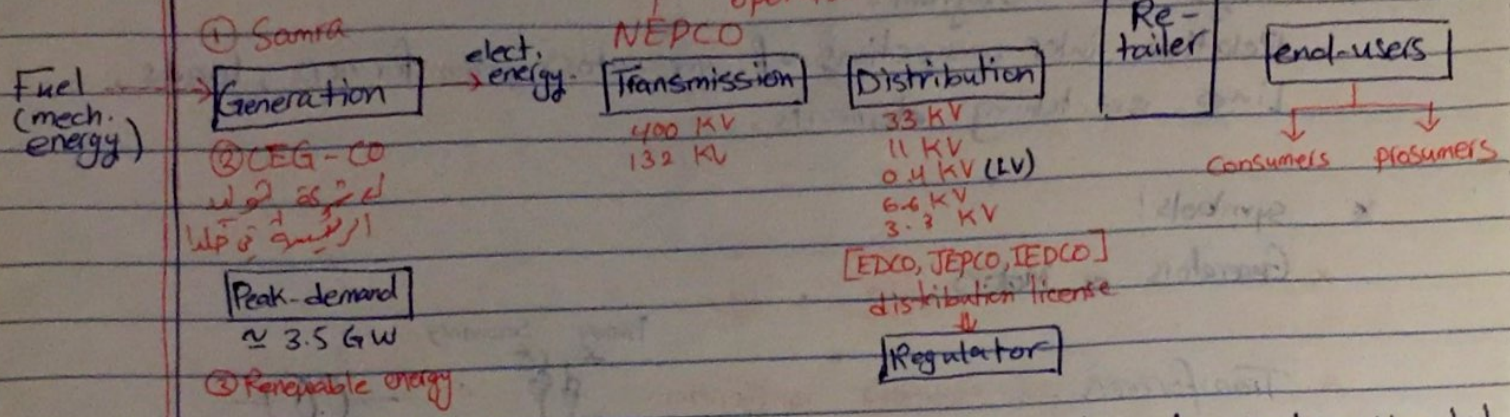 ① Samra
Fuel
(mech.
energy)
Generation
② CEG-CO
Peak-demand
≃ 3.5 GW
③ Renewable energy.
elect.
energy.
NEPCO
Transmission
400 KV
132 KV
Distribution
33 KV
11 KV
0.4 KV (LV)
6.6 KV
3.3 KV
[EDCO, JEPCO, IEDCO]
distribution license
Regulator
Re-
tailer
end-users
Consumers prosumers